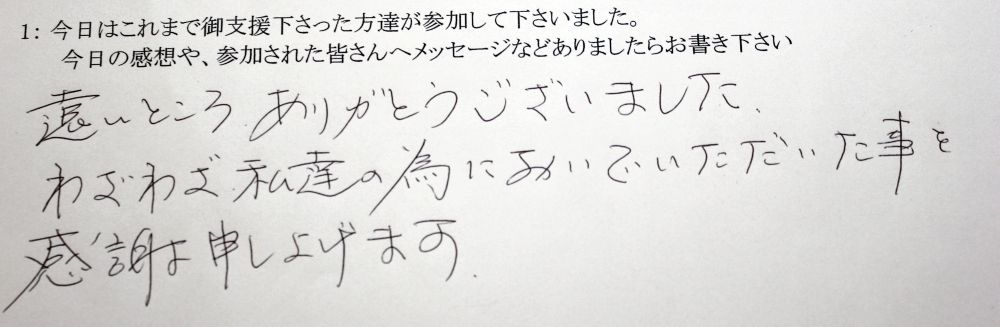 1: 今日はこれまで御支援下さった方達が参加して下さいました。
今日の感想や、参加された皆さんへメッセージなどありましたらお書き下さい
遠いところ ありがとうございました.
わざわざ 私達の為においでいただいた事を
感謝は申し上げます.